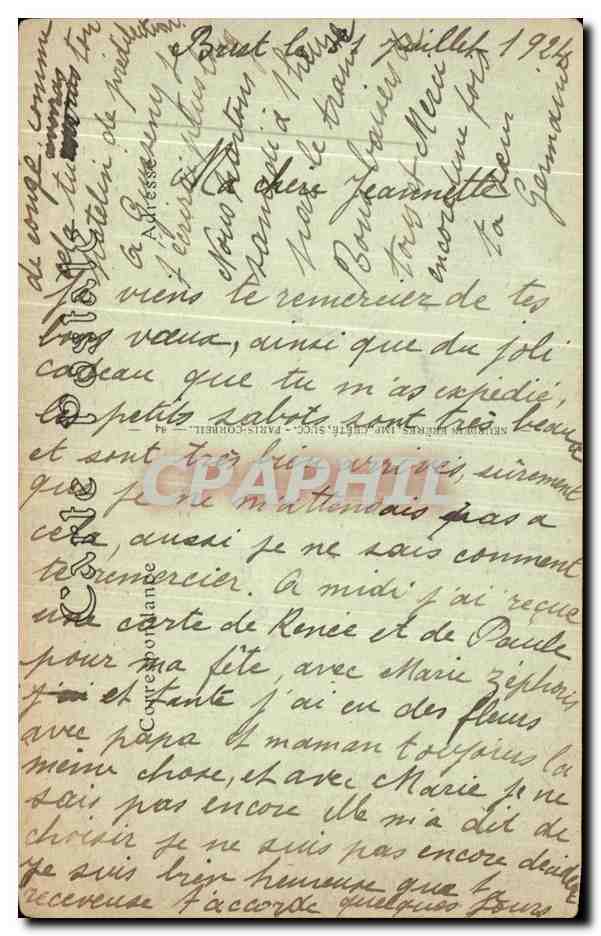 Brest le 1 Juillet 1924
Ma chère Jeannette
Je viens te remerciez de tes
bons vœux, ainsi que du joli
cadeau que tu m'as expédié,
les petits sabots sont très beaux
et sont très bien arrivés, sûrement
que je ne m'attendais pas a
cela, aussi je ne sais comment
te remercier. A midi j'ai reçue
une carte de Renée et de Paule
pour ma fête, avec Marie Zéphoris
j'ai et tante j'ai eu des fleurs
avec papa et maman toujours la
même chose, et avec Marie je ne
sais pas encore elle m'a dit de
choisir je ne suis pas encore décidée
Je suis bien heureuse que ta
receveuse t'accorde quelques jours
de congé comme
cela tu ton
de prédilection.
A
j'écrirai plus
Nous partons
samedi à l'heure
par le train
Bons baisers à
tous et Merci
encore une fois
ta
Germaine
Carte Postale
Correspondance
Adresse
NEURDEIN FRÈRES, IMP. CRÉTÉ, SUCC. - PARIS-CORBEIL. — 84
CPARPHIL